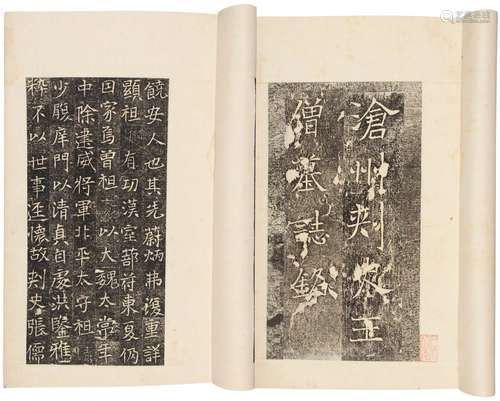 滄州刺史王
僧墓誌銘
饒安人也其先蔚炳弗復重詳
顯祖有功漢室部符東夏仍
因家焉曾祖以大魏太常年
中除建威將軍北平太守祖
少履庠門以清真自處洪鑒雅
粹不以世事逕懷故刺史張儒